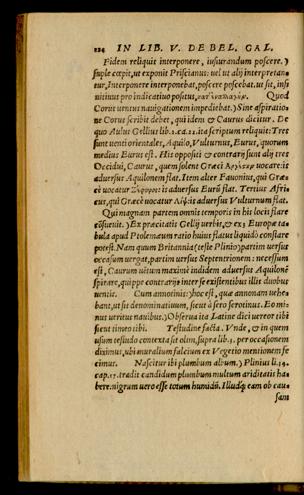 124 IN LIB. V. DE BEL. GAL.
Fidem reliquit interponere, iusiurandum poscere.)
suple cœpit, ut exponit Priscianus: uel ut alij interpretan=
tur, Interponere interponebat, poscere poscebat. ut sit, infi
nitiuus pro indicatiuo positus, Quod
Corus uentus nauigationem impediebat.) Sine aspiratio=
ne Corus scribit debet, qui idem & Caurus dicitur. De
quo Aulus Gellius lib. 2. ca. 22. ita scriptum reliquit: Tres
sunt uenti orientales, Aquilo, Vulturnus, Eurus, quorum
medius Eurus est. His oppositi & contrarij sunt alij tres
Occidui, Caurus, quem solent Græci uocare: is
aduersus Aquilonem flat. Item alter Fauonius, qui Græ
cè uocatur is aduersus Eurũ flat. Tertius Afri=
cus, qui Græcè uocatur is aduersus Vulturnum flat.
Qui magnam partem omnis temporis in his locis flare
cõsueuit.) Ex præcitatis Gelij uerbis, & ex Europæ ta
bula apud Ptolemæum ratio huius flatus liquidò constare
potest. Nam quum Britannia (teste Plinio) partim uersus
occasum uergat, partim uersus Septentrionem: necessum
est, Caurum uitium maximè indidem aduersus Aquilonẽ
spirare, quippe contrarijs inter se existentibus illis duobus
uentis. Cum annotinis:) hoc est, quæ annonam uehe=
bant, ut sit denominatiuum, sicut à sero serotinus. Eo mi=
nus ueritus nauibus.) Obserua ita Latine dici uereor tibi
sicut timeo tibi. Testudine facta. Vnde, & in quem
usum testudo contexta sit olim, supra lib. 2. per occasionem
diximus, ubi muralium falcium ex Vegetio mentionem fe
cimus. Nascitur ibi plumbum album.) Plinius li. 34.
cap. 17. tradit candidum plumbum multum ariditatis ha=
bere. nigrum uero esse totum humidũ. Illudq; eam ob cau=
sam